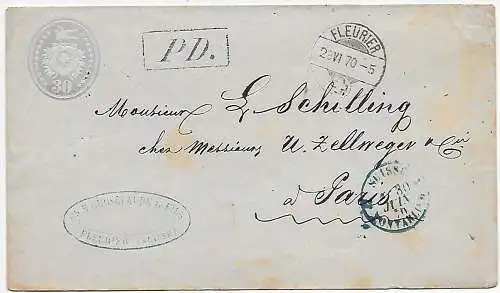 30
P.D.
FLEURIER
29 VI 70 - 5
Monsieur L. Schilling
chez Messieurs U. Zellweger & Cie
à Paris
SUISSE
30
JUIN
PONTARLIER
& FILS
FLEURIER